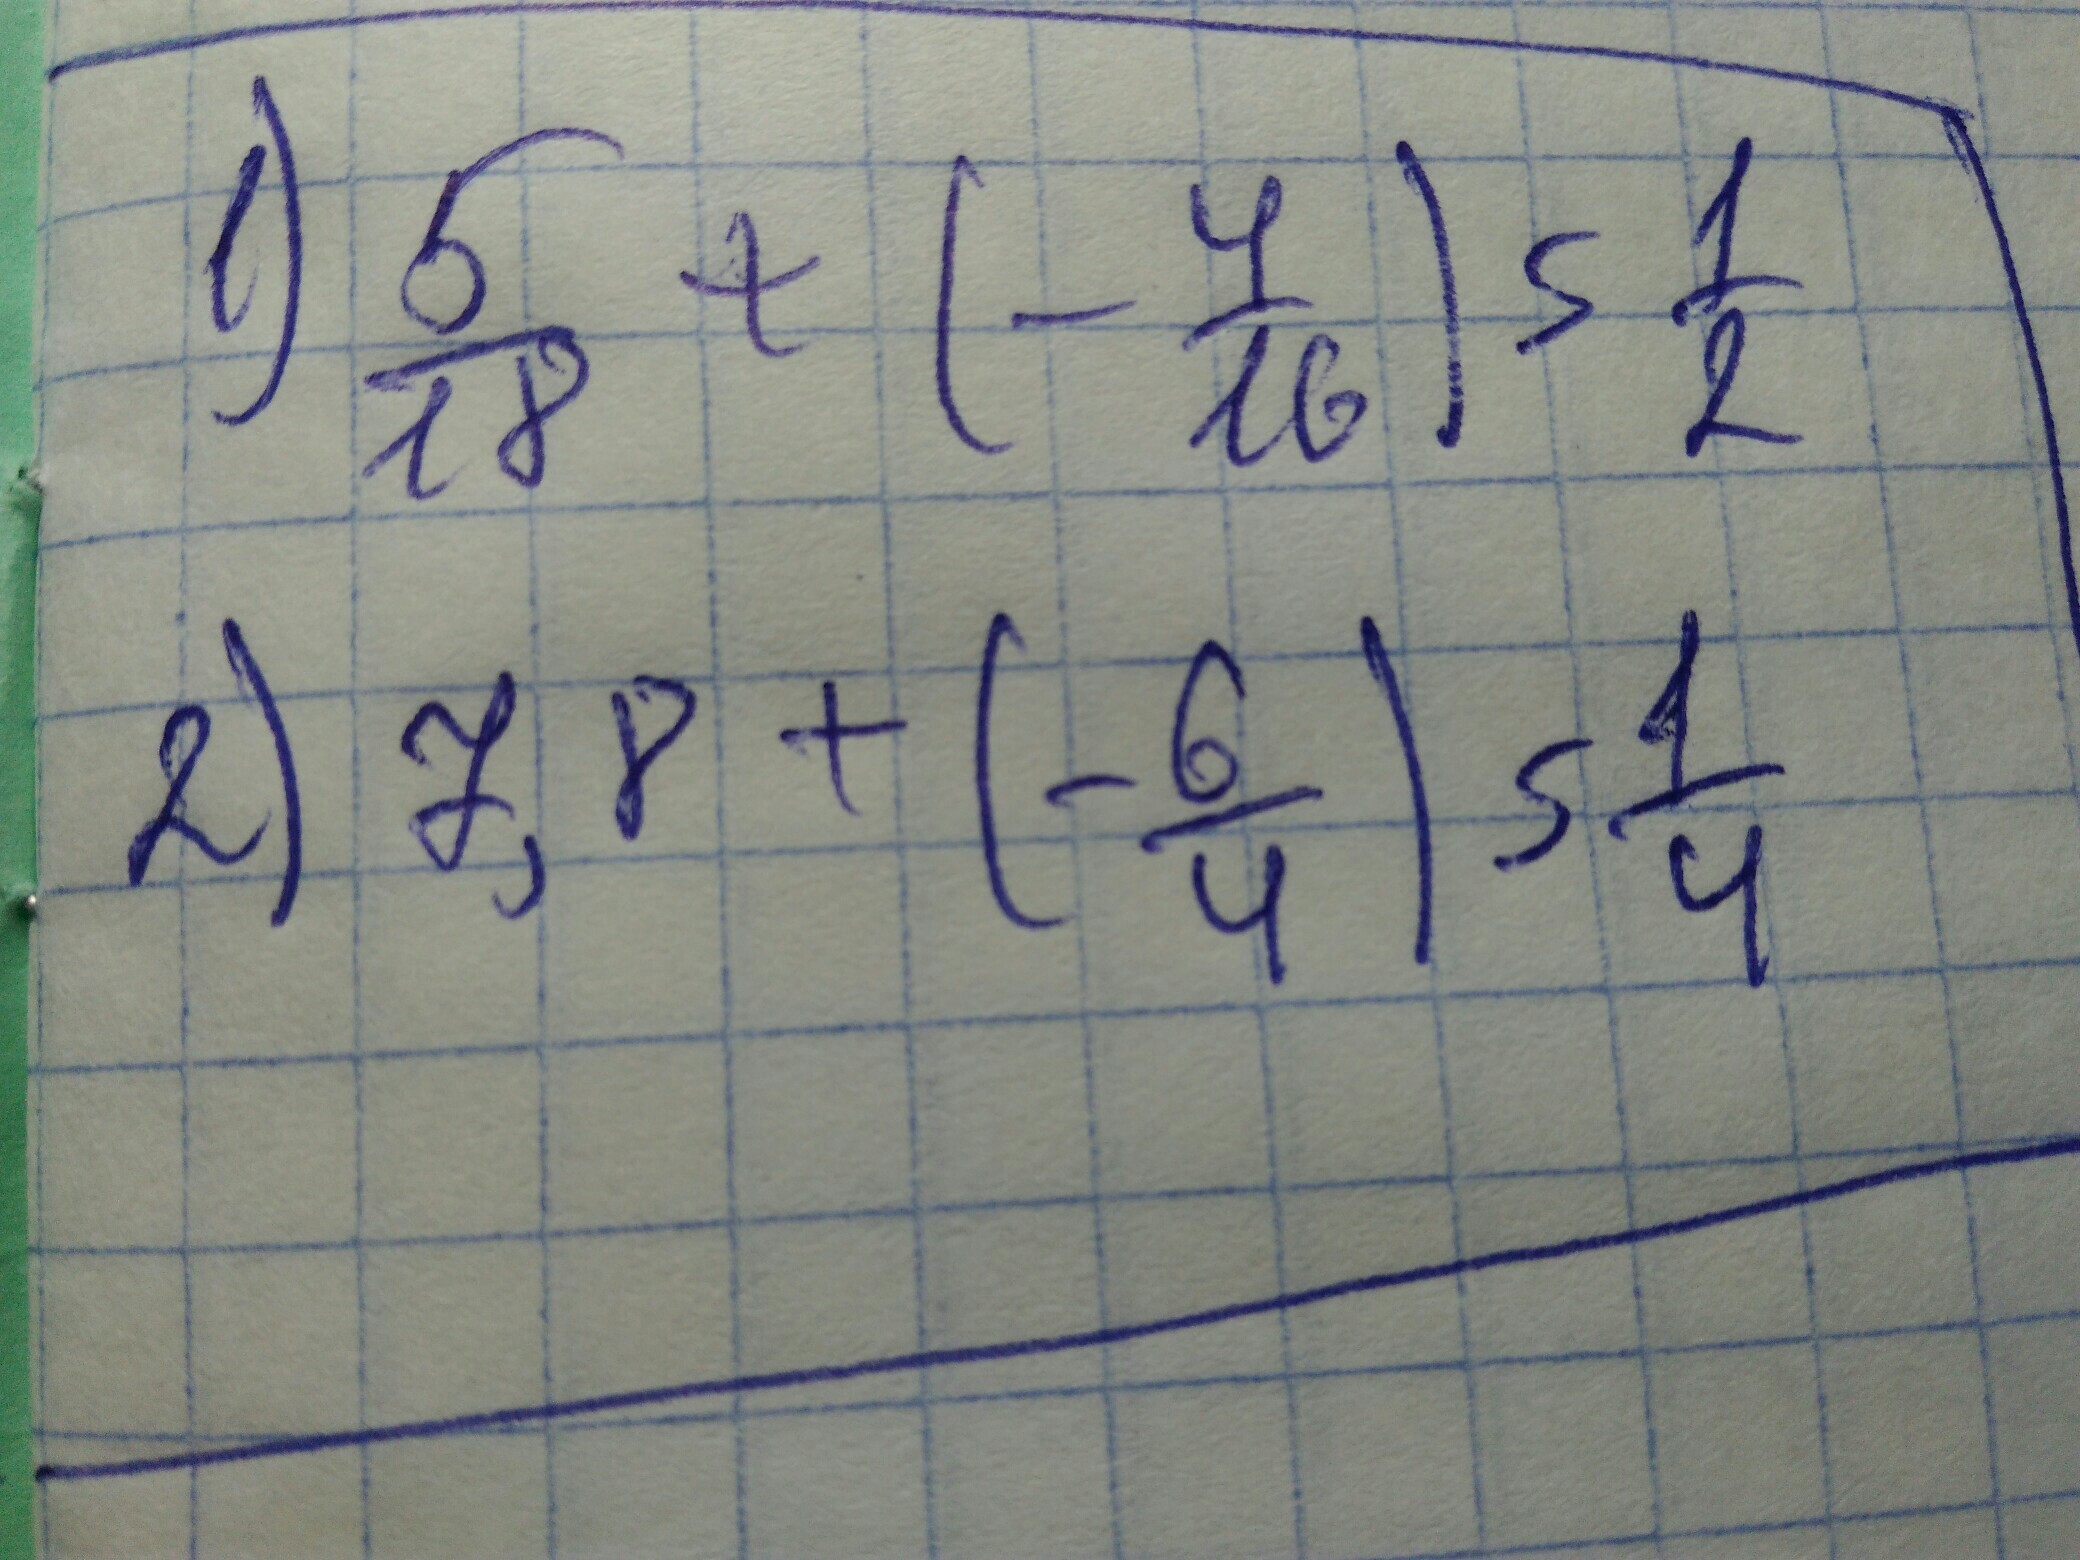 1) 6/18 + (- 4/16) s 1/2
2) 7,8 + (- 6/4) s 1/4